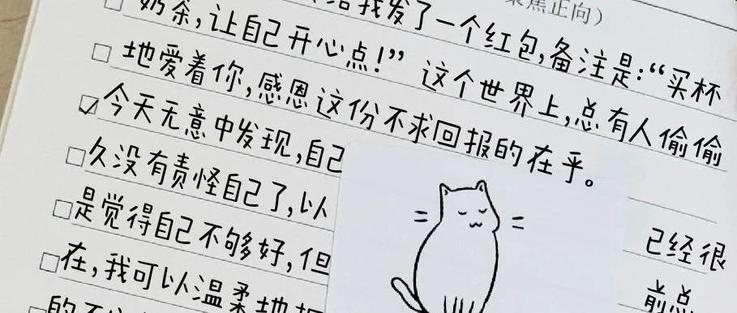 聚焦正向）
给我发了一个红包，备注是：“买杯
奶茶，让自己开心点！”这个世界上，总有人偷偷
地爱着你，感恩这份不求回报的在乎。
今天无意中发现，自己 已经很
久没有责怪自己了，以 前总
是觉得自己不够好，但
在，我可以温柔地